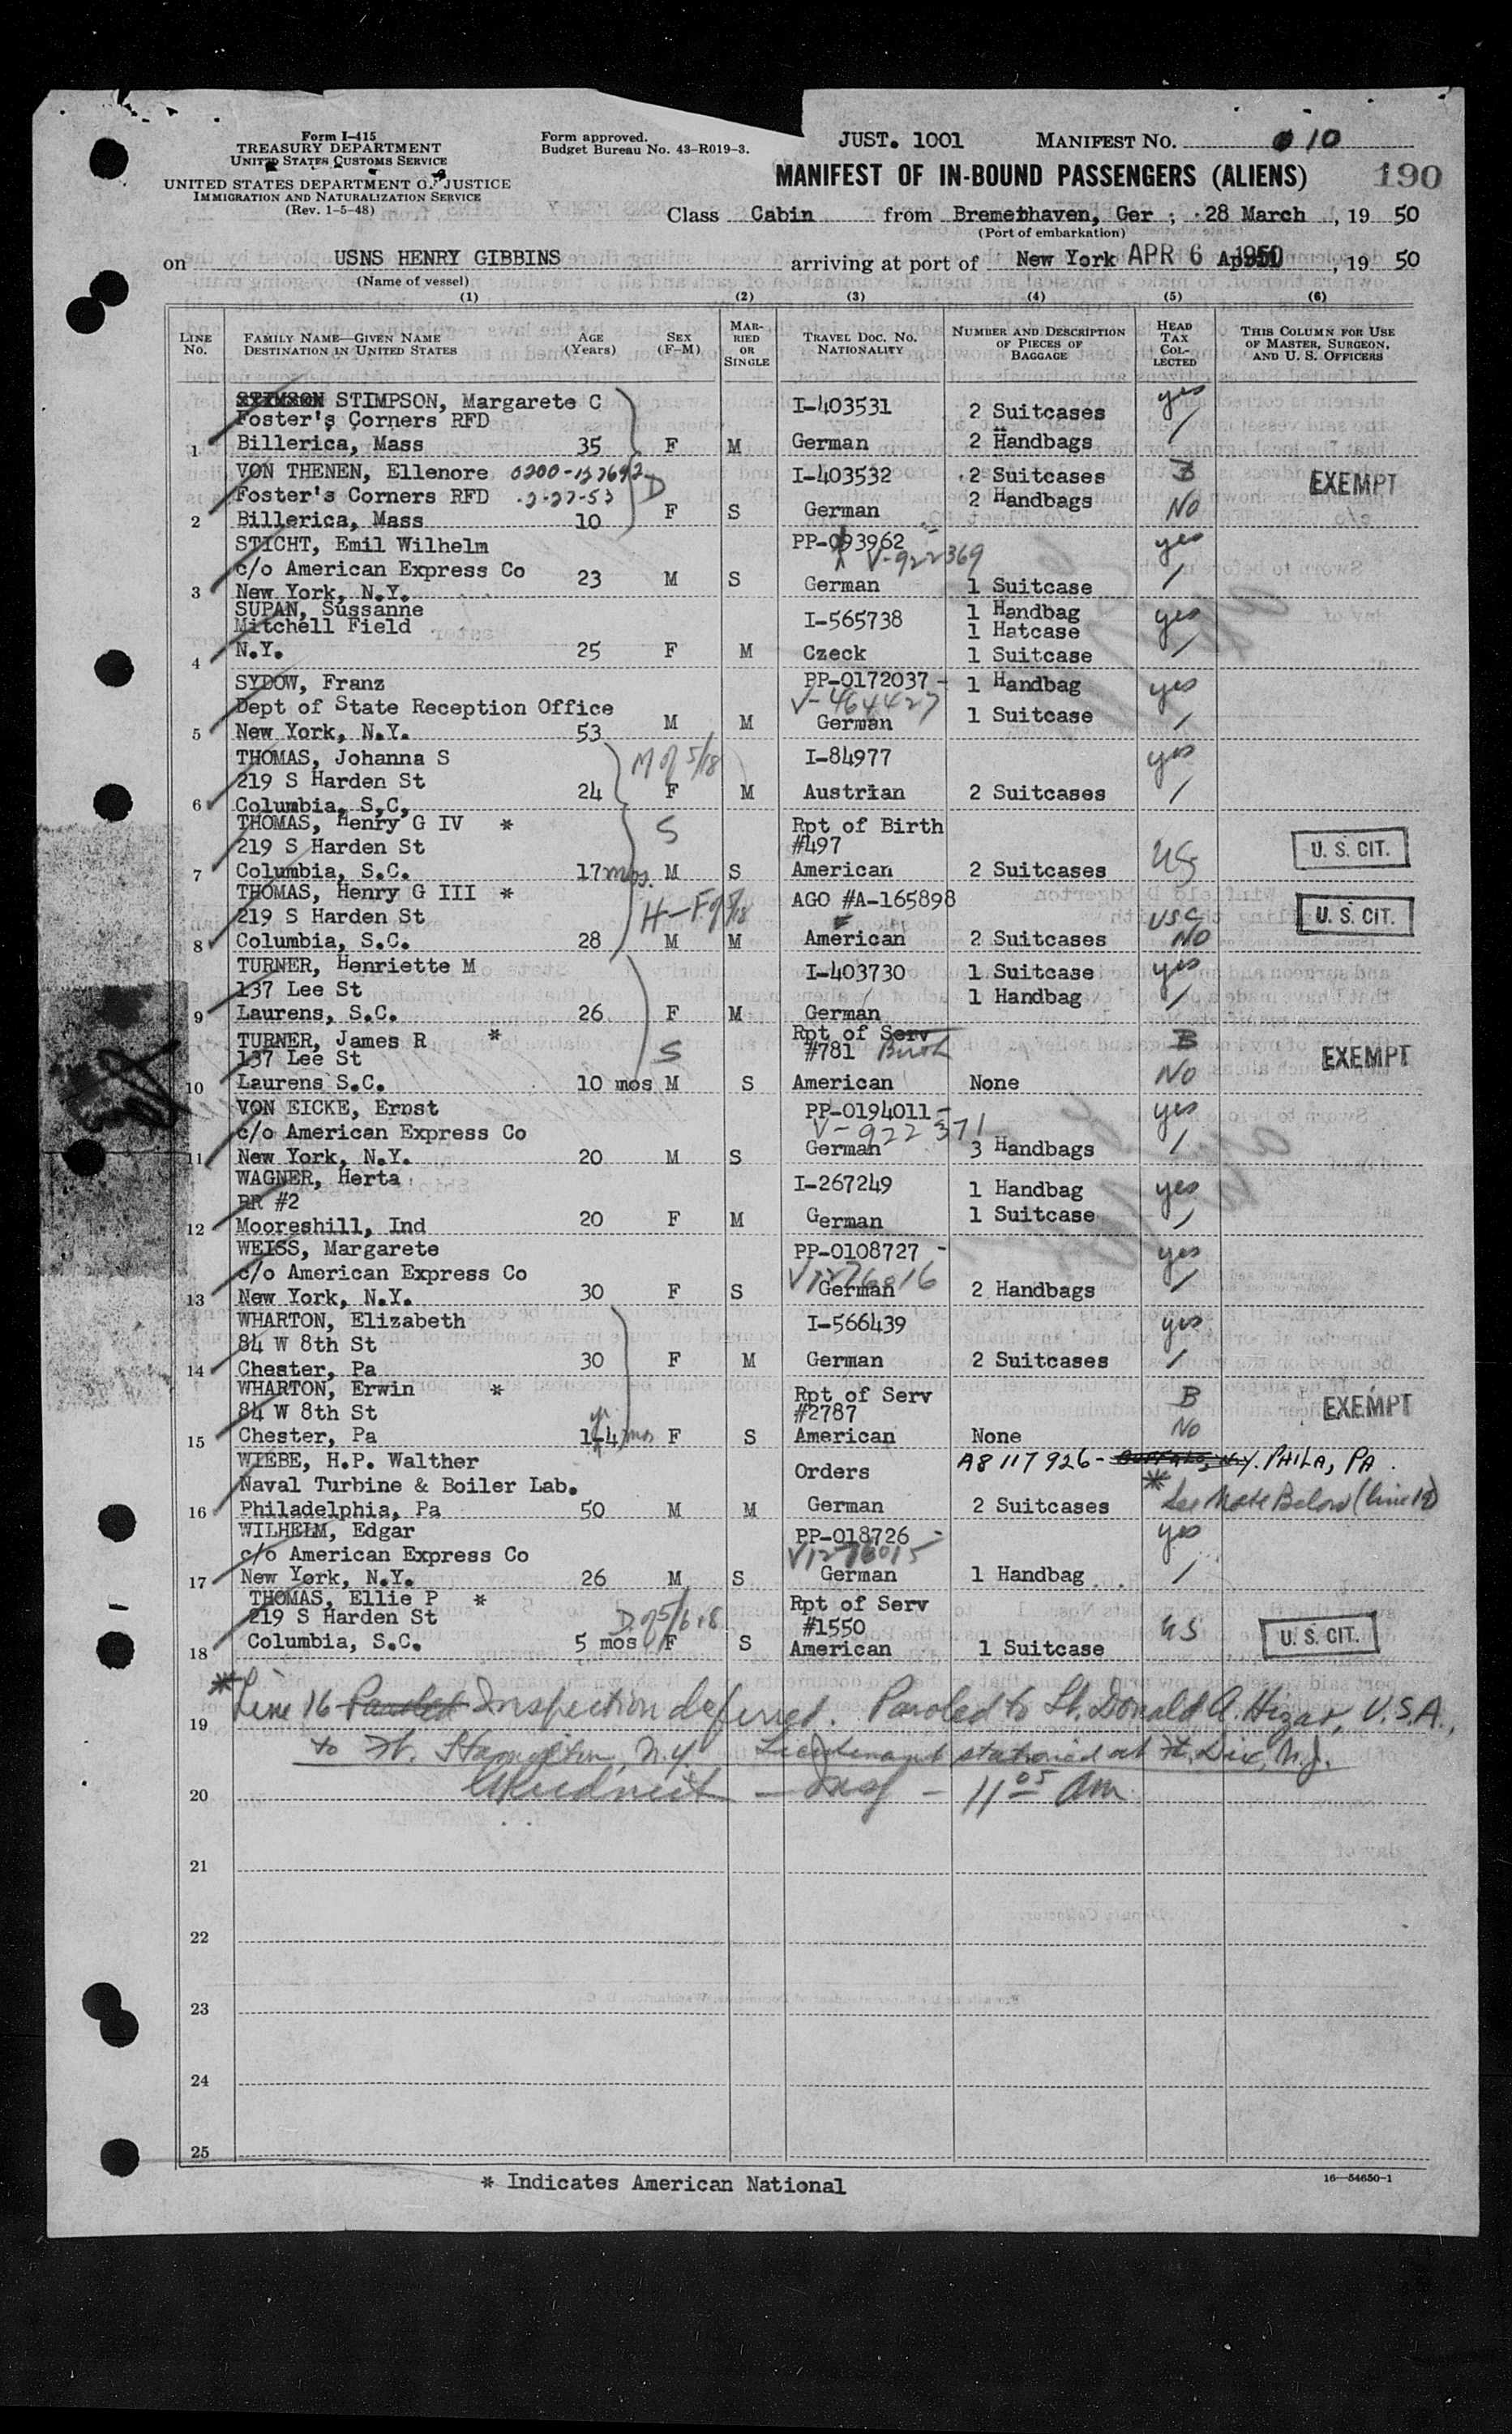 Form I-415
TREASURY DEPARTMENT
UNITED STATES CUSTOMS SERVICE
UNITED STATES DEPARTMENT OF JUSTICE
IMMIGRATION AND NATURALIZATION SERVICE
(Rev. 1-5-48)
Form approved.
Budget Bureau No. 43-R019-3.
JUST. 1001 MANIFEST NO. 10
MANIFEST OF IN-BOUND PASSENGERS (ALIENS) 190
Class Cabin from Bremerhaven, Ger ; 28 March, 19 50
(Port of embarkation)
on USNS HENRY GIBBINS arriving at port of New York APR 6 1950 April, 19 50
(Name of vessel)
(1) (2) (3) (4) (5) (6)
LINE NO. FAMILY NAME—GIVEN NAME DESTINATION IN UNITED STATES AGE (Years) SEX (F-M) MARRIED OR SINGLE TRAVEL DOC. NO. NATIONALITY NUMBER AND DESCRIPTION OF PIECES OF BAGGAGE HEAD TAX COLLECTED THIS COLUMN FOR USE OF MASTER, SURGEON, AND U. S. OFFICERS
STIMSON STIMPSON, Margarete C I-403531 2 Suitcases yes
Foster's Corners RFD
1 Billerica, Mass 35 F M German 2 Handbags /
VON THENEN, Ellenore 0200-137692 D I-403532 2 Suitcases B EXEMPT
Foster's Corners RFD 2-27-53 2 Handbags
2 Billerica, Mass 10 F S German No
STICHT, Emil Wilhelm PP-093962 yes
c/o American Express Co V-922369
3 New York, N.Y. 23 M S German 1 Suitcase /
SUPAN, Sussanne 1 Handbag yes
Mitchell Field I-565738 1 Hatcase
4 N.Y. 25 F M Czeck 1 Suitcase /
SYDOW, Franz PP-0172037 - 1 Handbag yes
Dept of State Reception Office V-464427
5 New York, N.Y. 53 M M German 1 Suitcase /
THOMAS, Johanna S M of 5/18 I-84977 yes
219 S Harden St
6 Columbia, S.C. 24 F M Austrian 2 Suitcases /
THOMAS, Henry G IV * S Rpt of Birth
219 S Harden St #497 U. S. CIT.
7 Columbia, S.C. 17 mos. M S American 2 Suitcases US
THOMAS, Henry G III * AGO #A-165898
219 S Harden St USC U. S. CIT.
8 Columbia, S.C. 28 M M American 2 Suitcases No
TURNER, Henriette M I-403730 1 Suitcase yes
137 Lee St 1 Handbag
9 Laurens, S.C. 26 F M German /
TURNER, James R * Rpt of Serv B EXEMPT
137 Lee St S #781 Birth
10 Laurens S.C. 10 mos M S American None No
VON EICKE, Ernst PP-0194011 - yes
c/o American Express Co V-922371
11 New York, N.Y. 20 M S German 3 Handbags /
WAGNER, Herta I-267249 1 Handbag yes
RR #2
12 Mooreshill, Ind 20 F M German 1 Suitcase /
WEISS, Margarete PP-0108727 - yes
c/o American Express Co V1276016
13 New York, N.Y. 30 F S German 2 Handbags /
WHARTON, Elizabeth I-566439 yes
84 W 8th St
14 Chester, Pa 30 F M German 2 Suitcases /
WHARTON, Erwin * Rpt of Serv B EXEMPT
84 W 8th St #2787
15 Chester, Pa 1 yr 4 mos F S American None No
WIEBE, H.P. Walther Orders A8 117 926 - PHILA, PA.
Naval Turbine & Boiler Lab.
16 Philadelphia, Pa 50 M M German 2 Suitcases * See Note Below (line 19)
WILHELM, Edgar PP-018726 - yes
c/o American Express Co V1276015
17 New York, N.Y. 26 M S German 1 Handbag /
THOMAS, Ellie P * Rpt of Serv
219 S Harden St D of 5/6 18 #1550 US U. S. CIT.
18 Columbia, S.C. 5 mos F S American 1 Suitcase
* Line 16 Paroled Inspection deferred. Paroled to Lt. Donald A. Hegar, U.S.A.,
19
to Ft. Hamilton, N.Y. Lieutenant stationed at Ft. Dix, N.J.
20 — Insp — 11 05 am
21
22
23
24
25
* Indicates American National
16—54650-1